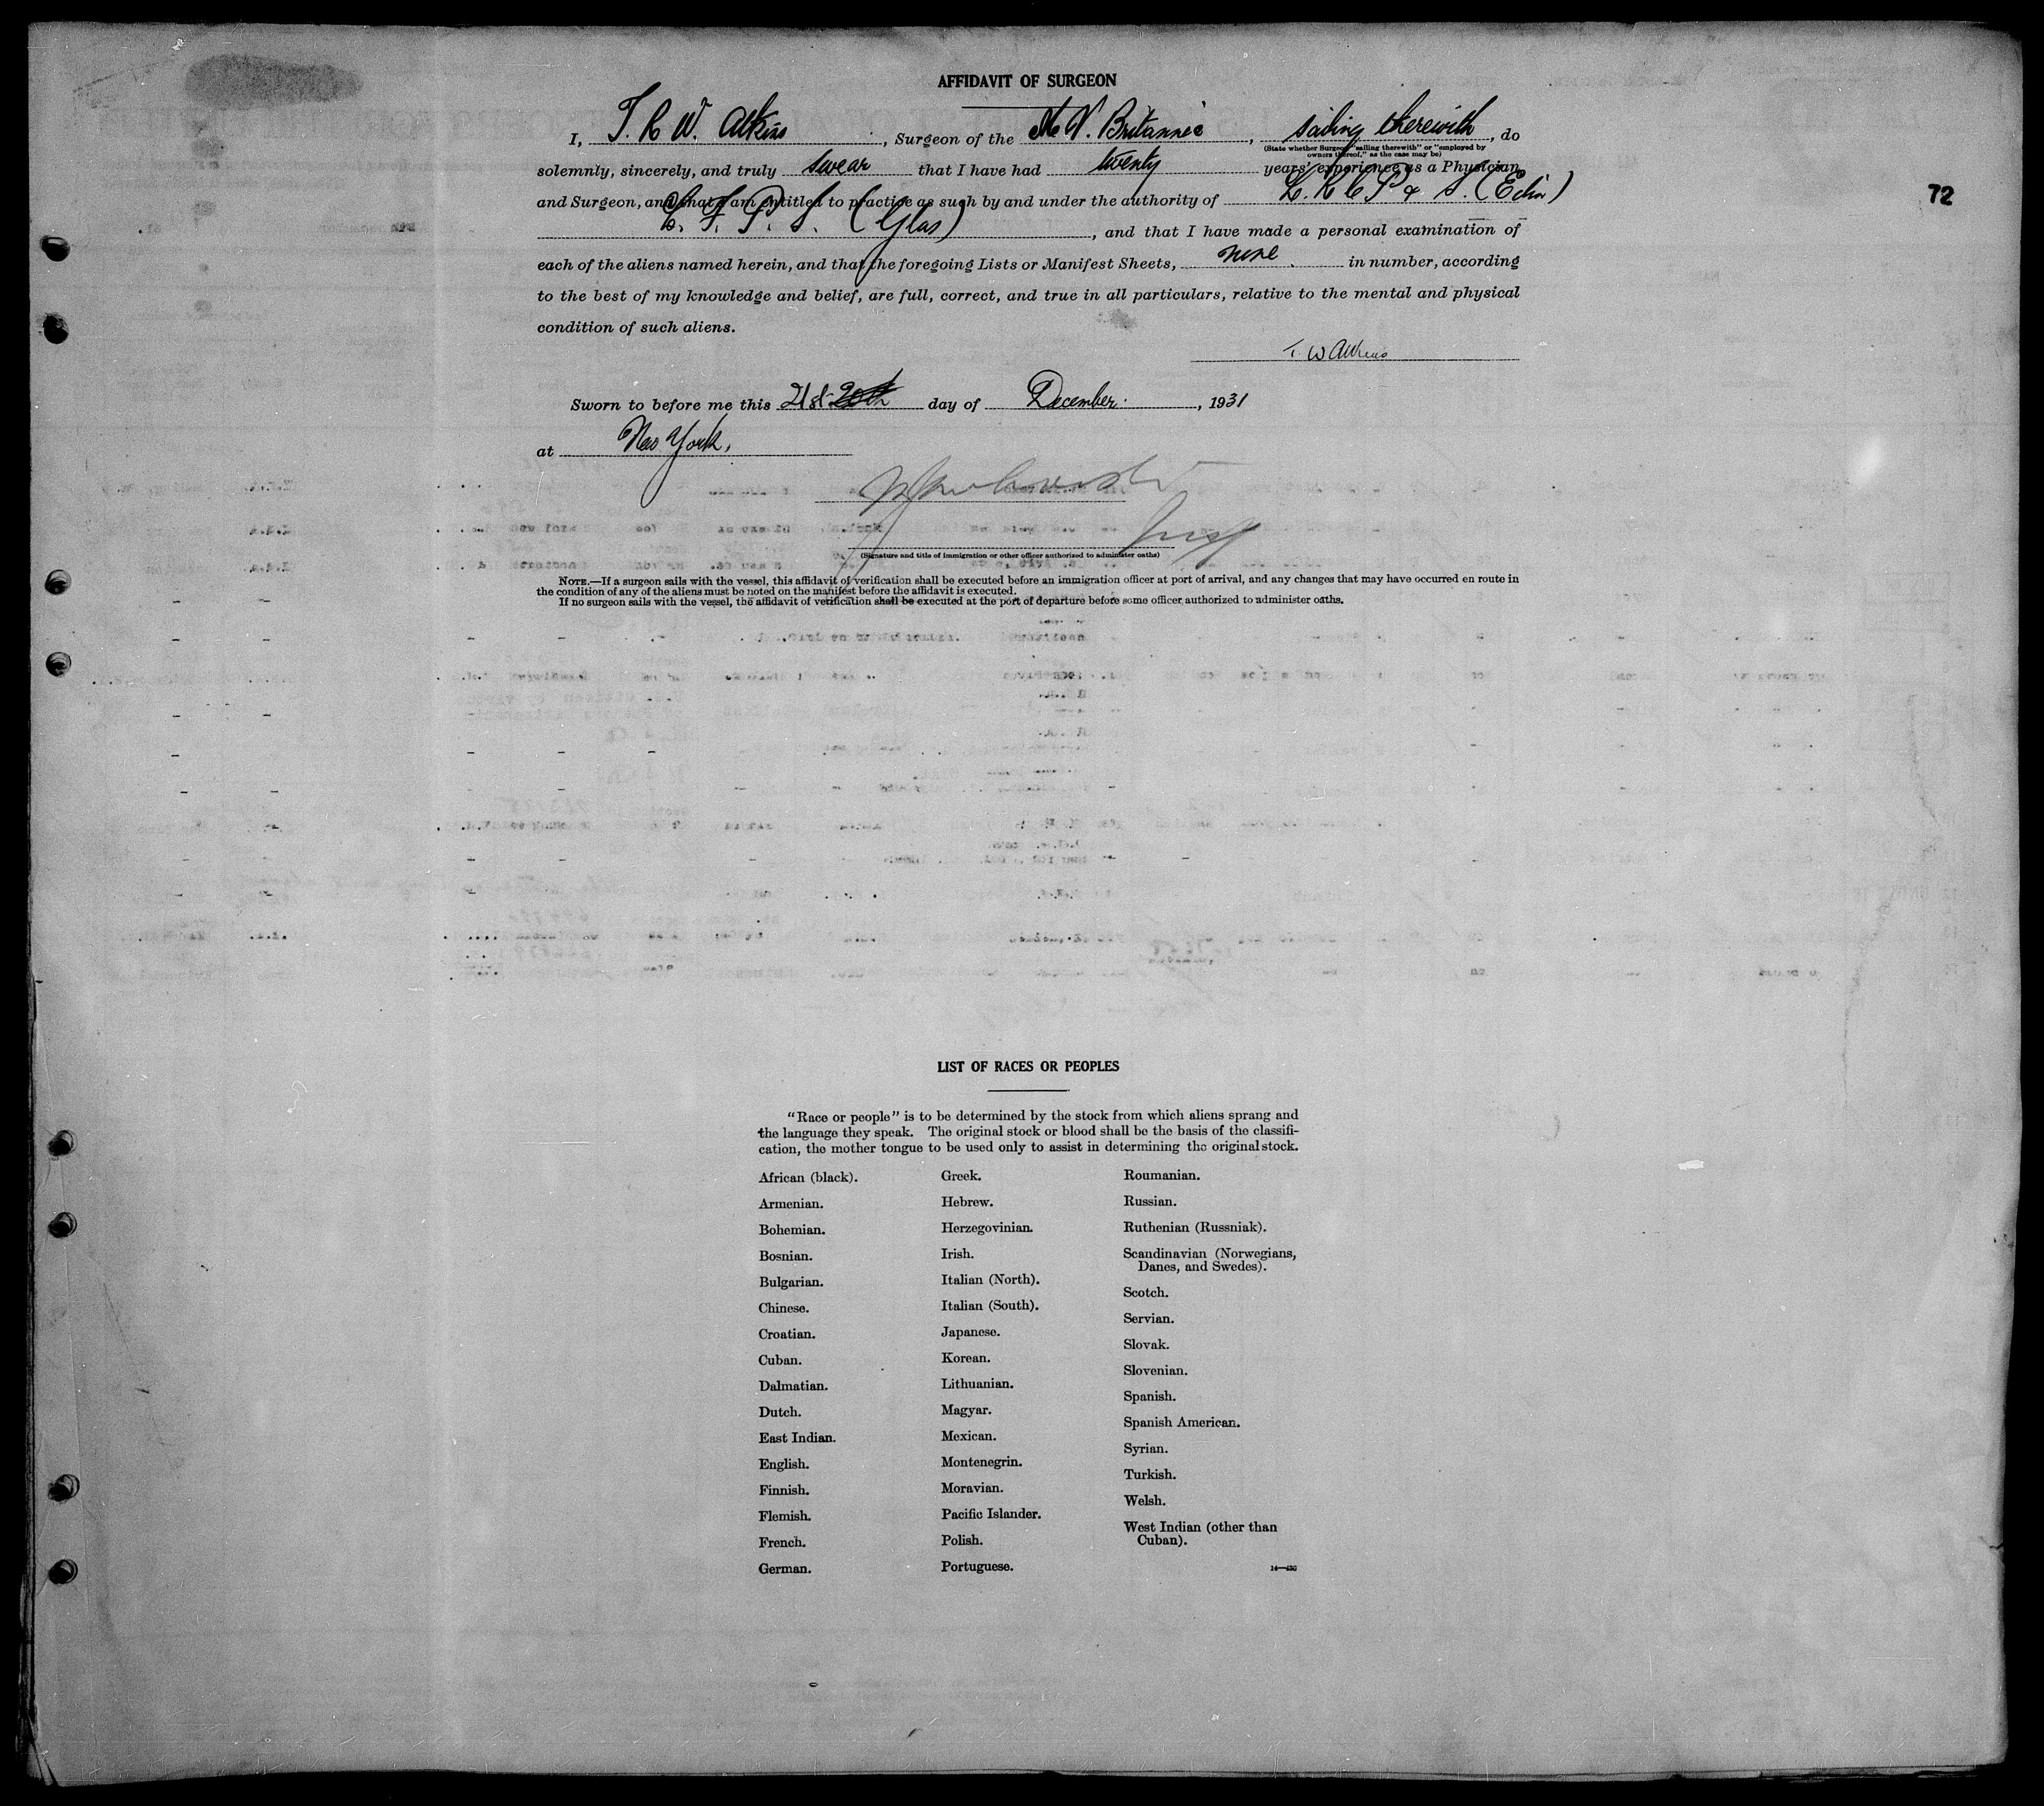 AFFIDAVIT OF SURGEON
I, T. R. W. Atkins, Surgeon of the M.V. Britannic, sailing therewith, do
(State whether Surgeon "sailing therewith" or "employed by
owners thereof," as the case may be)
solemnly, sincerely, and truly swear that I have had twenty years' experience as a Physician
and Surgeon, and that I am entitled to practise as such by and under the authority of L. R. C. P & S. (Edin)
L. F. P. S. (Glas), and that I have made a personal examination of
72
each of the aliens named herein, and that the foregoing Lists or Manifest Sheets, in number, according
to the best of my knowledge and belief, are full, correct, and true in all particulars, relative to the mental and physical
condition of such aliens.
W Atkins
Sworn to before me this 21st 20th day of December, 1931
at New York.
(Signature and title of immigration or other officer authorized to administer oaths)
NOTE.—If a surgeon sails with the vessel, this affidavit of verification shall be executed before an immigration officer at port of arrival, and any changes that may have occurred en route in
the condition of any of the aliens must be noted on the manifest before the affidavit is executed.
If no surgeon sails with the vessel, the affidavit of verification shall be executed at the port of departure before some officer authorized to administer oaths.
LIST OF RACES OR PEOPLES
"Race or people" is to be determined by the stock from which aliens sprang and
the language they speak. The original stock or blood shall be the basis of the classifi-
cation, the mother tongue to be used only to assist in determining the original stock.
African (black).
Armenian.
Bohemian.
Bosnian.
Bulgarian.
Chinese.
Croatian.
Cuban.
Dalmatian.
Dutch.
East Indian.
English.
Finnish.
Flemish.
French.
German.
Greek.
Hebrew.
Herzegovinian.
Irish.
Italian (North).
Italian (South).
Japanese.
Korean.
Lithuanian.
Magyar.
Mexican.
Montenegrin.
Moravian.
Pacific Islander.
Polish.
Portuguese.
Roumanian.
Russian.
Ruthenian (Russniak).
Scandinavian (Norwegians,
Danes, and Swedes).
Scotch.
Servian.
Slovak.
Slovenian.
Spanish.
Spanish American.
Syrian.
Turkish.
Welsh.
West Indian (other than
Cuban).